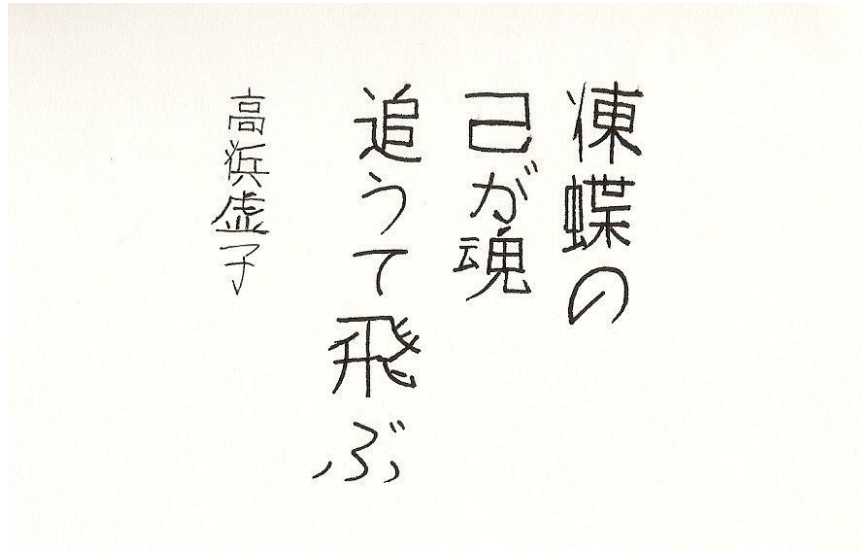 凍蝶の
己が魂
追うて飛ぶ
高浜虚子